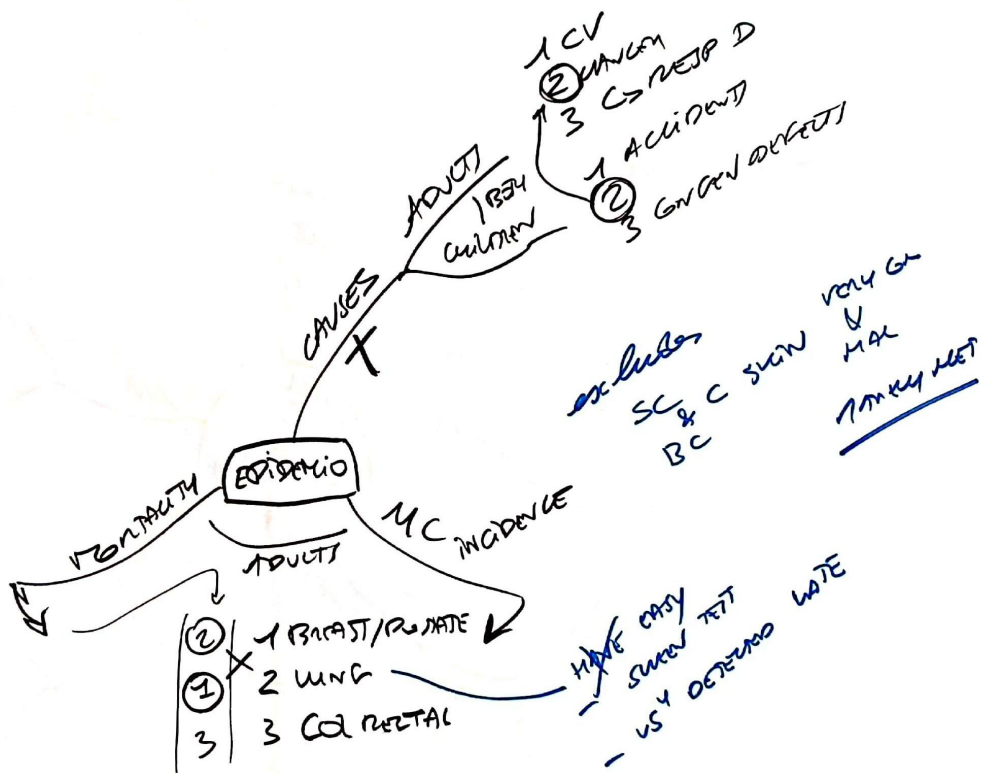 1 CV
2 CANCER
3 C> RESP D
1 ACCIDENTS
2
3 CONGEN DEFECTS
ADULTS
CHILDREN
CAUSES
X
excludes
SC & BC C SKIN
VERY
MAL
MET
EPIDEMIO
MORTALITY
ADULTS
MC INCIDENCE
2 1 BREAST/PROSTATE
1 2 LUNG
3 3 COLRECTAL
EASY
- SCREEN TEST
- DETECTED LATE